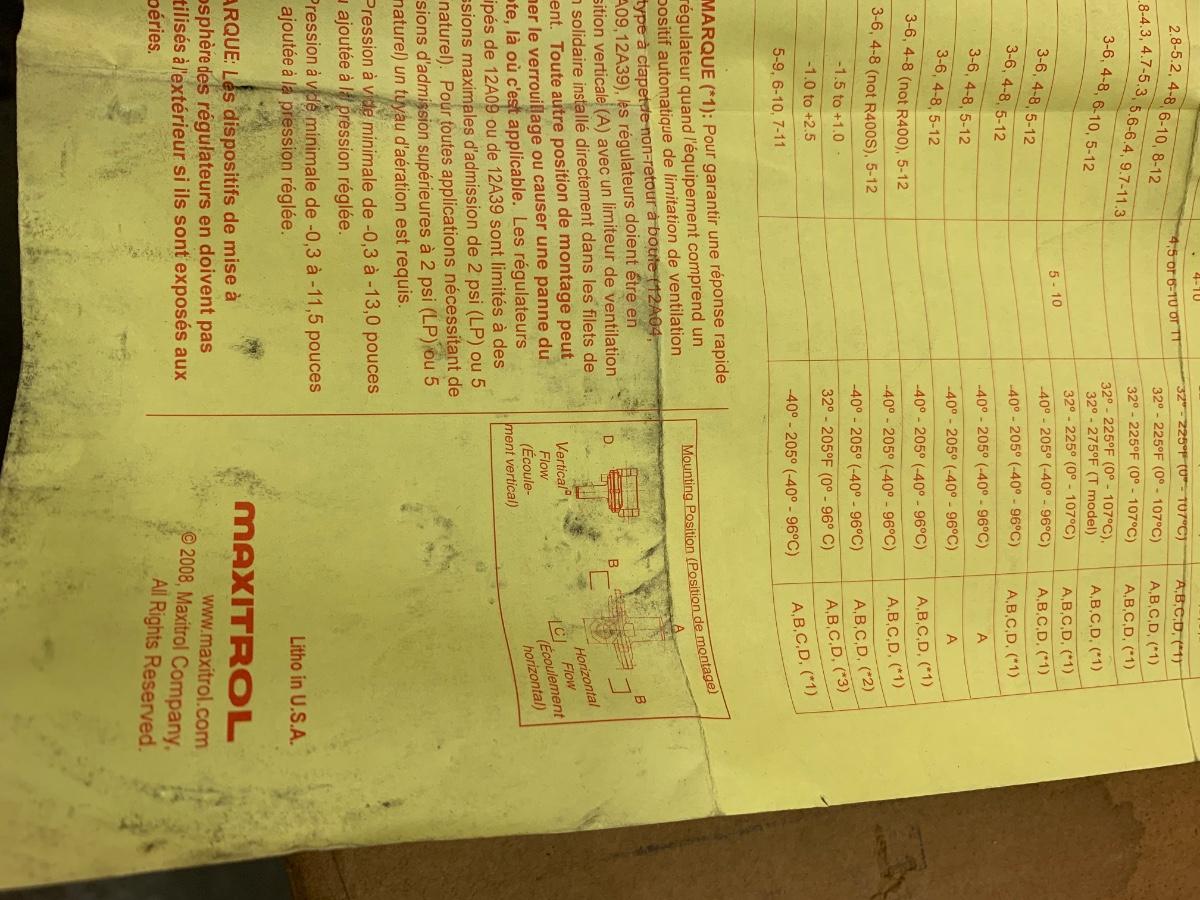 4-10
4,5 or 6-10 or 11 32º - 225ºF (0º - 107ºC) A,B,C,D, (*1)
2.8-5.2, 4-8, 6-10, 8-12 32º - 225ºF (0º - 107ºC) A,B,C,D, (*1)
8-4.3, 4.7-5.3, 5.6-6.4, 9.7-11.3 32º - 225ºF (0º - 107ºC) A,B,C,D, (*1)
3-6, 4-8, 6-10, 5-12 32º - 225ºF (0º - 107ºC), A,B,C,D, (*1)
32º - 275ºF (T model)
5 - 10 32º - 225º (0º - 107ºC) A,B,C,D, (*1)
3-6, 4-8, 5-12 -40º - 205º (-40º - 96ºC) A,B,C,D, (*1)
3-6, 4-8, 5-12 -40º - 205º (-40º - 96ºC) A,B,C,D, (*1)
3-6, 4-8, 5-12 -40º - 205º (-40º - 96ºC) A
3-6, 4-8, 5-12 -40º - 205º (-40º - 96ºC) A
3-6, 4-8 (not R400), 5-12 -40º - 205º (-40º - 96ºC) A,B,C,D, (*1)
3-6, 4-8 (not R400S), 5-12 -40º - 205º (-40º - 96ºC) A,B,C,D, (*1)
-1.5 to +1.0 -40º - 205º (-40º - 96ºC) A,B,C,D, (*2)
-1.0 to +2.5 32º - 205ºF (0º - 96º C) A,B,C,D, (*3)
5-9, 6-10, 7-11 -40º - 205º (-40º - 96ºC) A,B,C,D, (*1)
MARQUE (*1): Pour garantir une réponse rapide
régulateur quand l'équipement comprend un
positif automatique de limitation de ventilation
type à clapet non-retour à boule (12A04,
A09,12A39), les régulateurs doient être en
sition verticale (A) avec un limiteur de ventilation
solidaire installé directement dans les filets de
ent. Toute autre position de montage peut
ner le verrouillage ou causer une panne du
te, là où c'est applicable. Les régulateurs
ipés de 12A09 ou de 12A39 sont limités à des
ssions maximales d'admission de 2 psi (LP) ou 5
naturel). Pour toutes applications nécessitant de
sions d'admission supérieures à 2 psi (LP) ou 5
naturel) un tuyau d'aération est requis.
Pression à vide minimale de -0,3 à -13,0 pouces
ajoutée à la pression réglée.
Pression à vide minimale de -0,3 à -11,5 pouces
ajoutée à la pression réglée.
ARQUE: Les dispositifs de mise à
osphère des régulateurs en doivent pas
tilisés à l'extérieur si ils sont exposés aux
péries.
Mounting Position (Position de montage)
A
D
B
B
C
Vertical
Flow
(Écoule-
ment vertical)
Horizontal
Flow
(Écoulement
horizontal)
Litho in U.S.A.
MAXITROL
www.maxitrol.com
© 2008, Maxitrol Company,
All Rights Reserved.